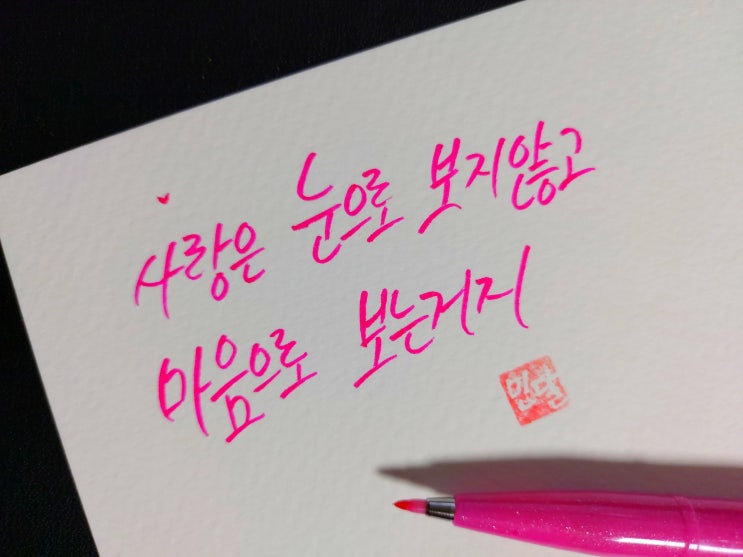 사랑은 눈으로 보지않고
마음으로 보는거지